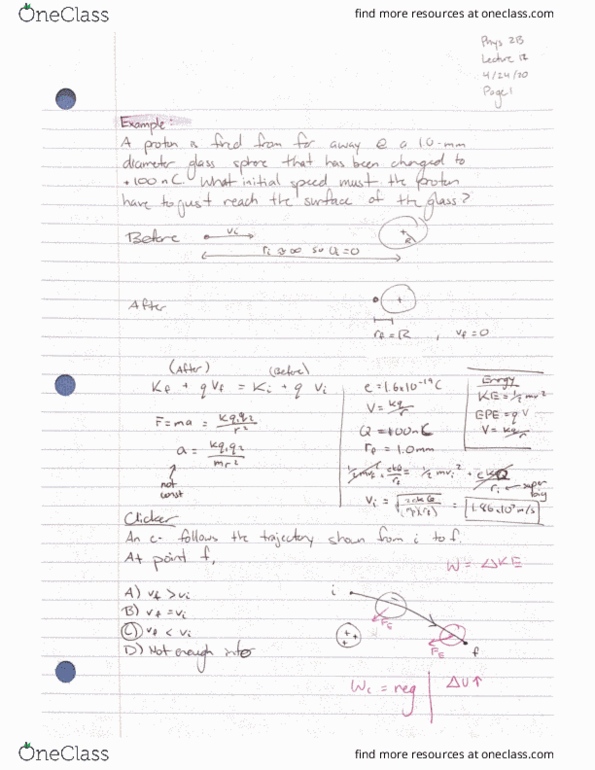 OneClass
find more resources at oneclass.com
Phys 2B
Lecture 12
4/24/20
Page 1
Example:
A proton is fired from far away @ a 1.0-mm
diameter glass sphere that has been charged to
+100 nC. What initial speed must the proton
have to just reach the surface of the glass?
Before
vi
+
R
ri ≈ ∞ so U = 0
After
+
rf = R , vf = 0
(After) (Before)
Kf + qVf = Ki + qVi
F = ma = kq1q2/r²
a = kq1q2/mr²
not
const
e = 1.6x10⁻¹⁹ C
V = kq/r
Q = +100nC
rf = 1.0mm
Energy
KE = ½mv²
EPE = qV
V = kq/r
½mvf² + ekQ/rf = ½mvi² + ekQ/ri
super
big
vi = = 1.86x10⁷ m/s
Clicker
An e- follows the trajectory shown from i to f.
At point f,
W = ΔKE
A) vf > vi
B) vf = vi
C) vf < vi
D) Not enough info
i
-
FE
+ + +
-
FE
f
= neg
ΔU↑
OneClass
find more resources at oneclass.com